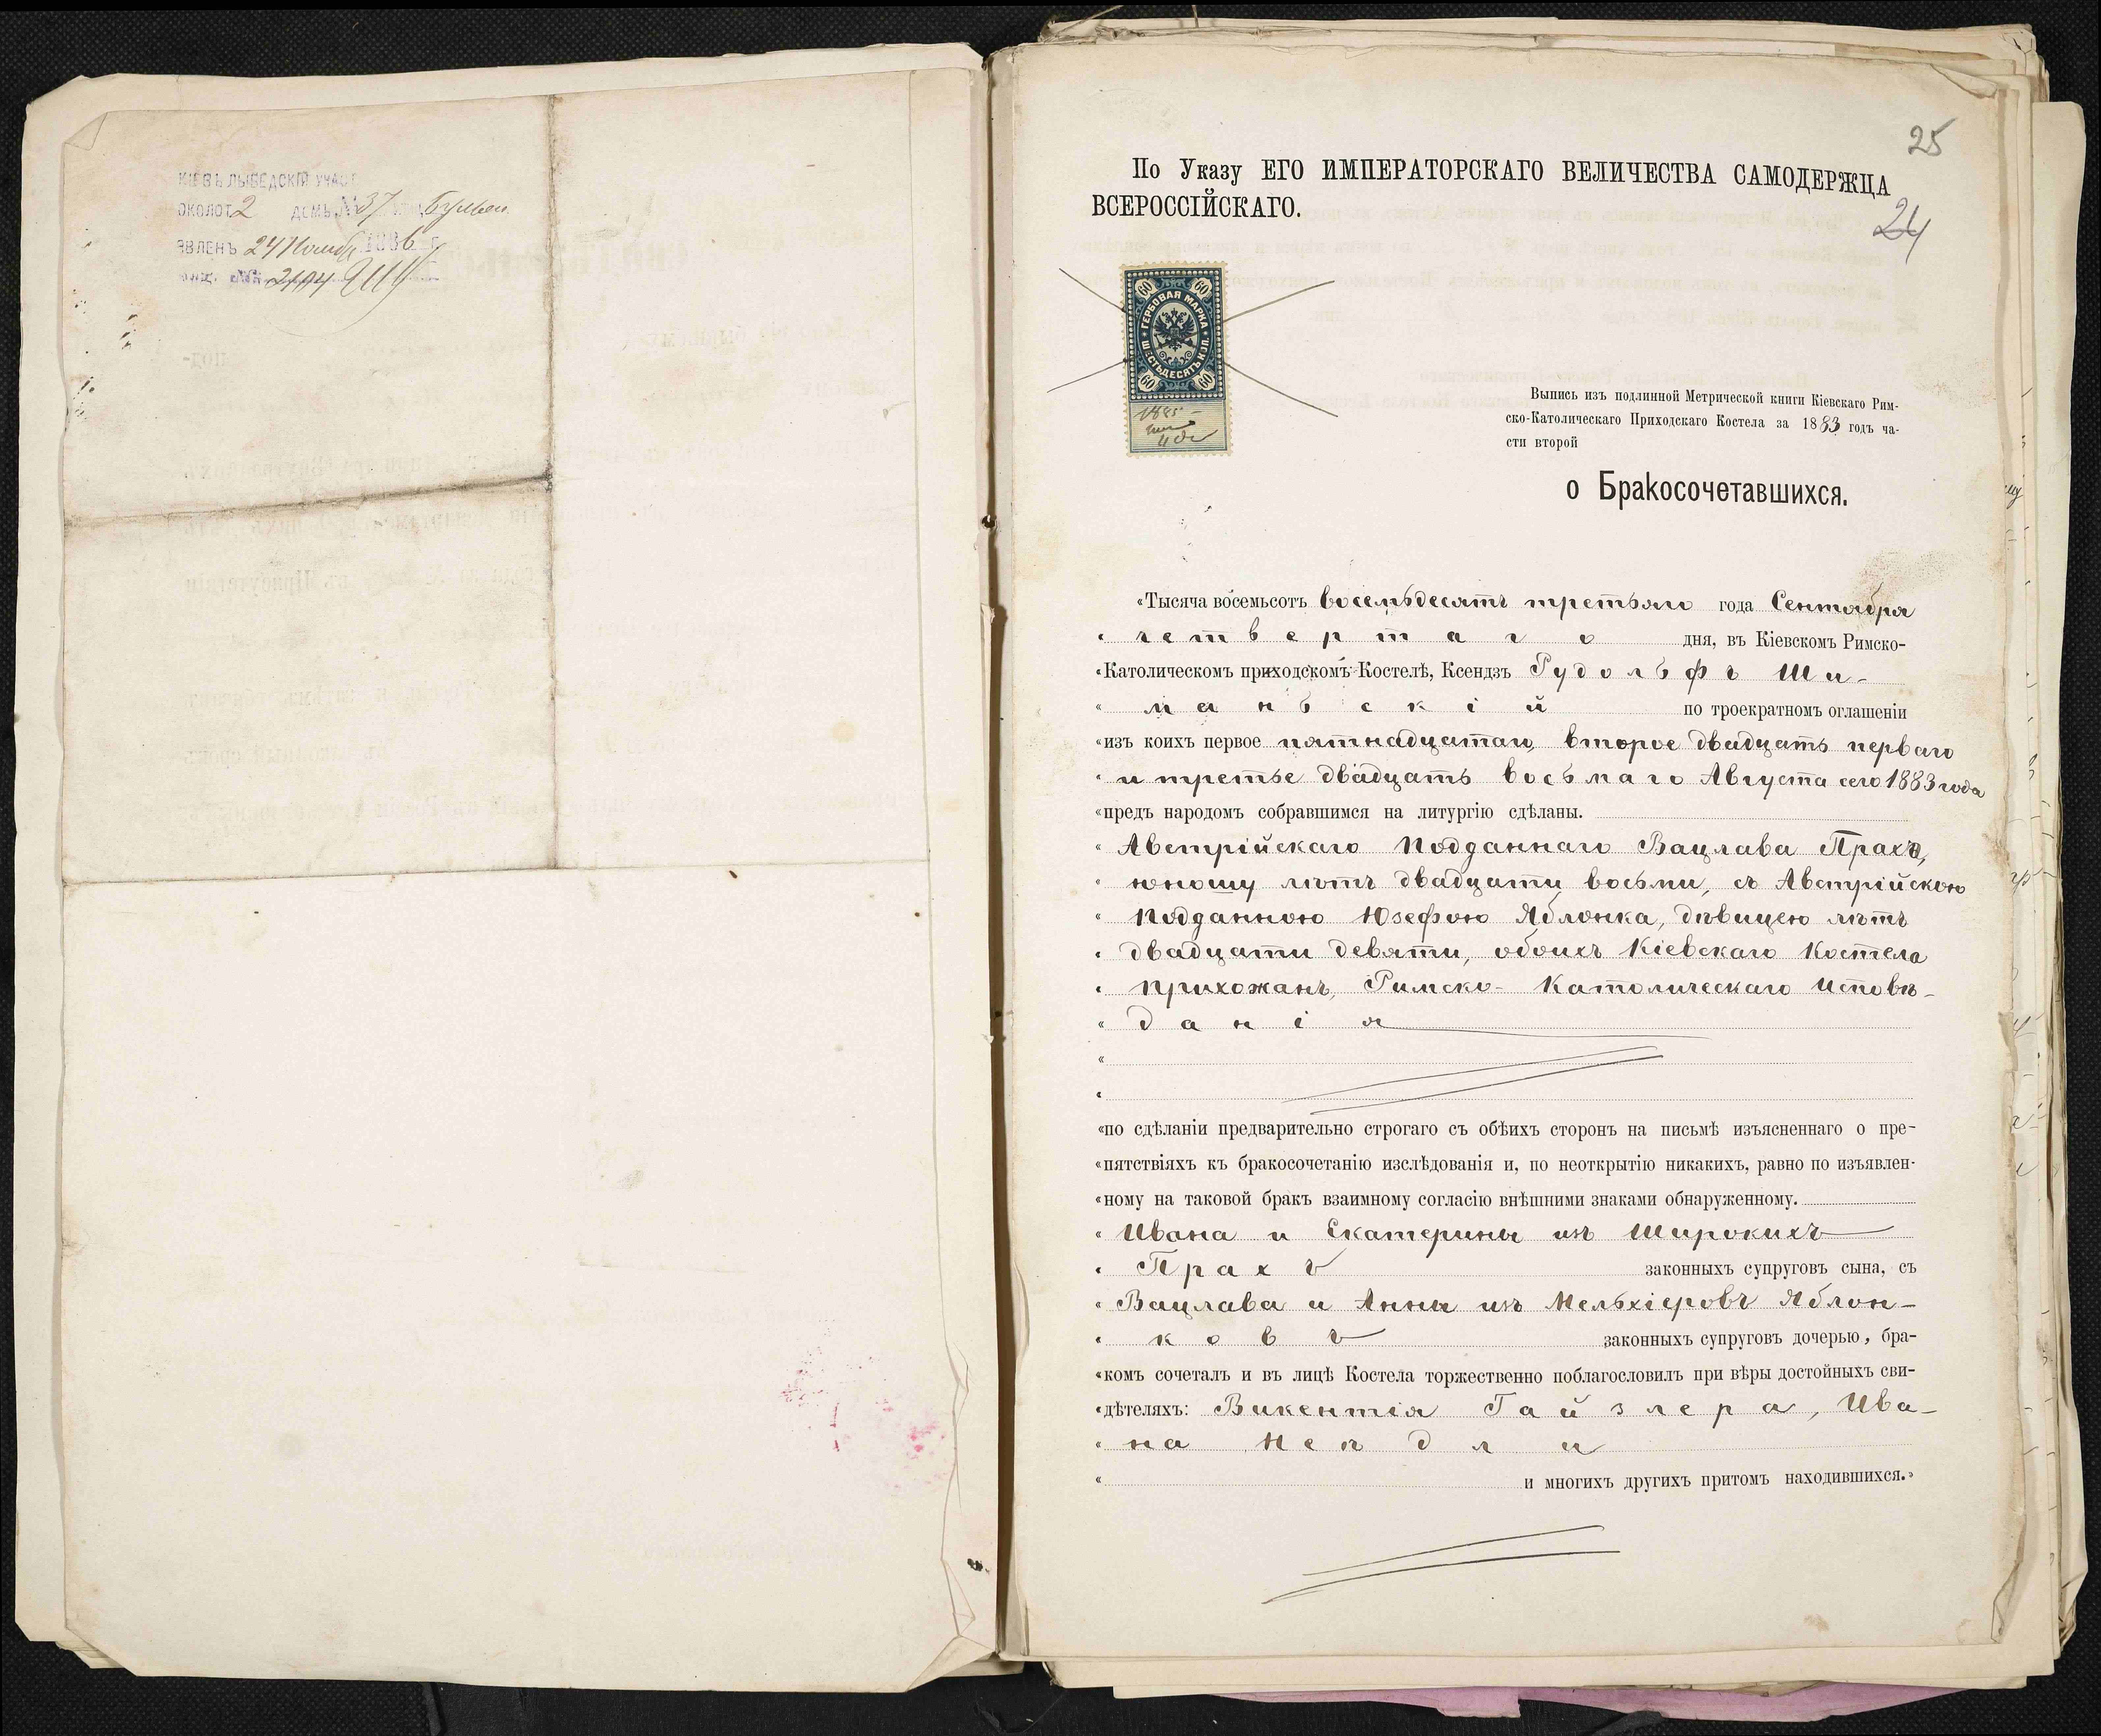 КІЕВЪ ЛЫБЕДСКІЙ УЧАСТ
ОКОЛОТ 2 ДОМЪ № 37 Бульвар
ЯВЛЕНЪ 24 Ноябр 1886 г
25
По Указу ЕГО ИМПЕРАТОРСКАГО ВЕЛИЧЕСТВА САМОДЕРЖЦА
ВСЕРОССІЙСКАГО.
24
60 60
ГЕРБОВАЯ МАРКА
ШЕСТЬДЕСЯТЪ КОП.
60 60
1885
Выпись изъ подлинной Метрической книги Кіевскаго Рим-
ско-Католическаго Приходскаго Костела за 1883 годъ ча-
сти второй
о Бракосочетавшихся.
«Тысяча восемьсотъ восемьдесятъ третьяго года Сентября
« четвертаго дня, въ Кіевскомъ Римско-
«Католическомъ приходскомъ Костелѣ, Ксендзъ Рудольфъ Ши-
« маньскій по троекратномъ оглашеніи
«изъ коихъ первое пятнадцатаго, второе двадцать перваго
« и третье двадцать восьмаго Августа сего 1883 года
«предъ народомъ собравшимся на литургію сдѣланы.
« Австрійскаго подданнаго Вацлава Праха,
« юношу лѣтъ двадцати восьми, съ Австрійскою
« подданною Юзефою Яблонка, дѣвицею лѣтъ
« двадцати девяти, обоихъ Кіевскаго Костела
« прихожанъ, Римско-Католическаго исповѣ-
« данія
«
«
«по сдѣланіи предварительно строгаго съ обѣихъ сторонъ на письмѣ изъясненнаго о пре-
«пятствіяхъ къ бракосочетанію изслѣдованія и, по неоткрытію никакихъ, равно по изъявлен-
«ному на таковой бракъ взаимному согласію внѣшними знаками обнаруженному.
« Ивана и Екатерины изъ Широкихъ
« Прахъ законныхъ супруговъ сына, съ
« Вацлава и Анны изъ Мельхіеровъ Яблон-
« ковъ законныхъ супруговъ дочерью, бра-
«комъ сочеталъ и въ лицѣ Костела торжественно поблагословилъ при вѣры достойныхъ сви-
«дѣтеляхъ: Викентія Гайзлера, Ива-
« на
« и многихъ другихъ притомъ находившихся.»